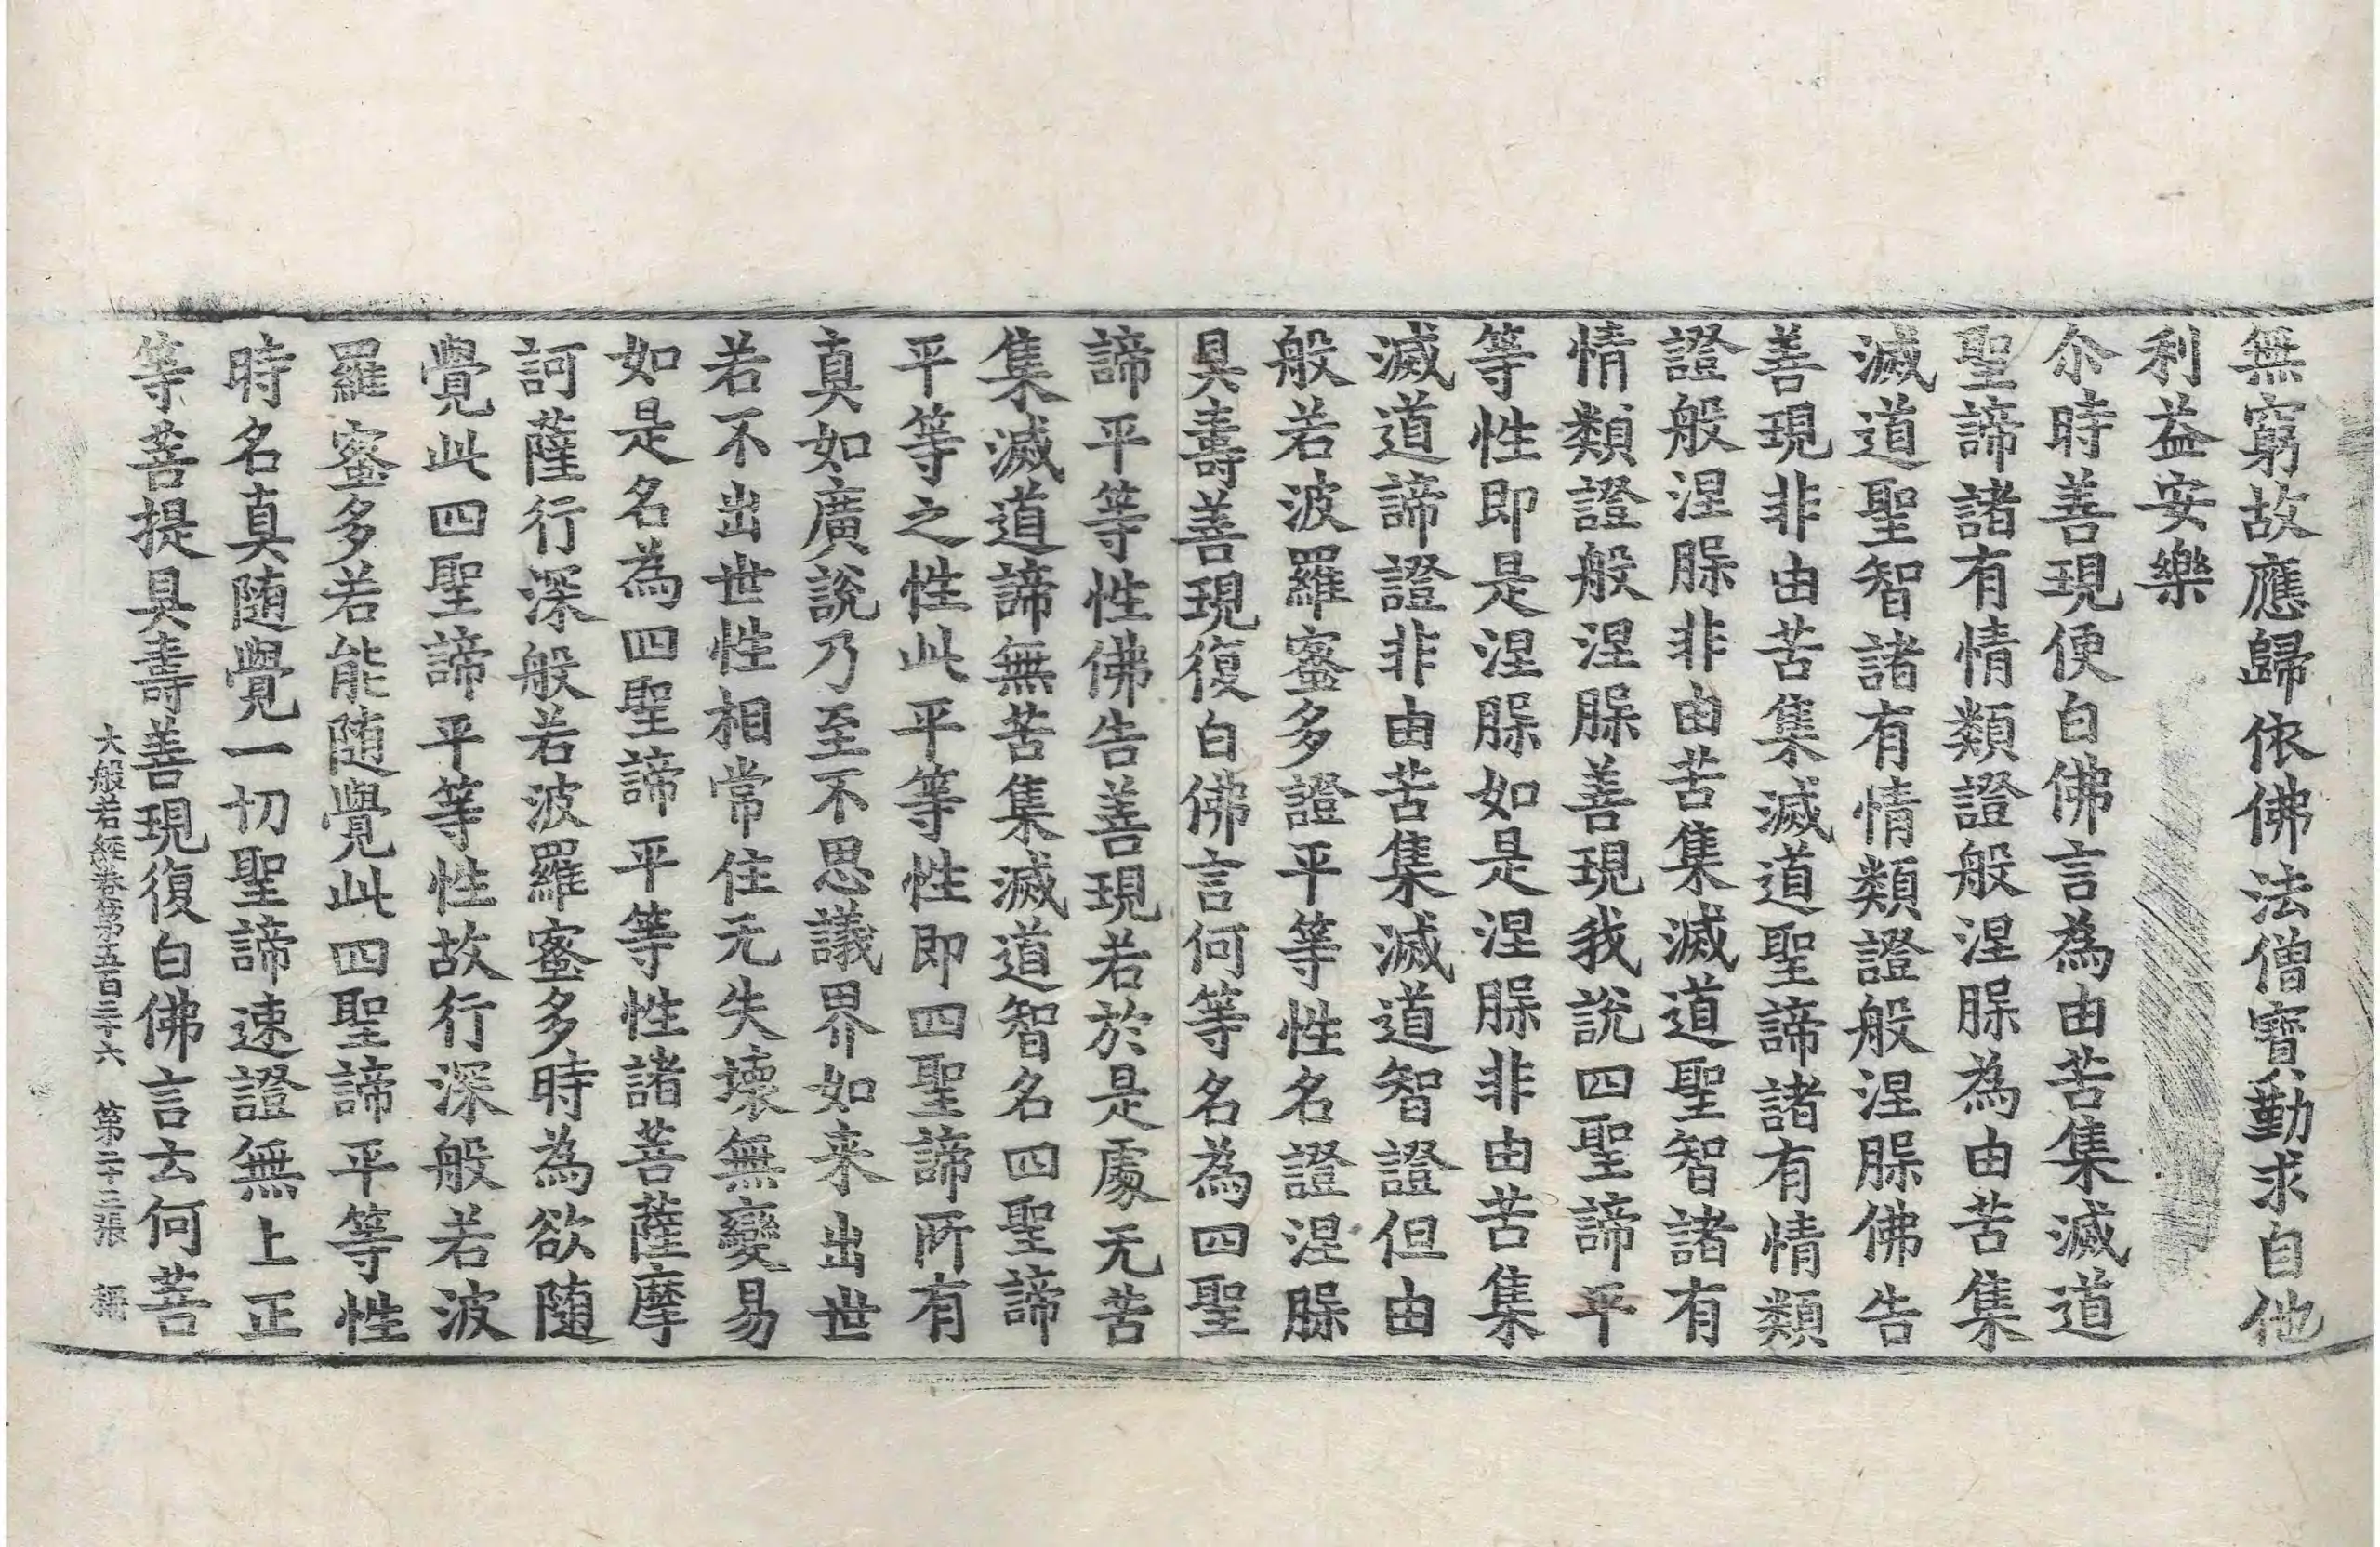 無窮故應歸依佛法僧寶勤求自他
利益安樂
尒時善現便白佛言為由苦集滅道
聖諦諸有情類證般涅脲為由苦集
滅道聖智諸有情類證般涅脲佛告
善現非由苦集滅道聖諦諸有情類
證般涅脲非由苦集滅道聖智諸有
情類證般涅脲善現我說四聖諦平
等性即是涅脲如是涅脲非由苦集
滅道諦證非由苦集滅道智證但由
般若波羅蜜多證平等性名證涅脲
具壽善現復白佛言何等名為四聖
諦平等性佛告善現若於是處无苦
集滅道諦無苦集滅道智名四聖諦
平等之性此平等性即四聖諦所有
真如廣說乃至不思議界如来出世
若不出世性相常住无失壞無變易
如是名為四聖諦平等性諸菩薩摩
訶薩行深般若波羅蜜多時為欲随
覺此四聖諦平等性故行深般若波
羅蜜多若能随覺此四聖諦平等性
時名真随覺一切聖諦速證無上正
等菩提具壽善現復白佛言云何菩
大般若經卷第五百三十六 第二十三張